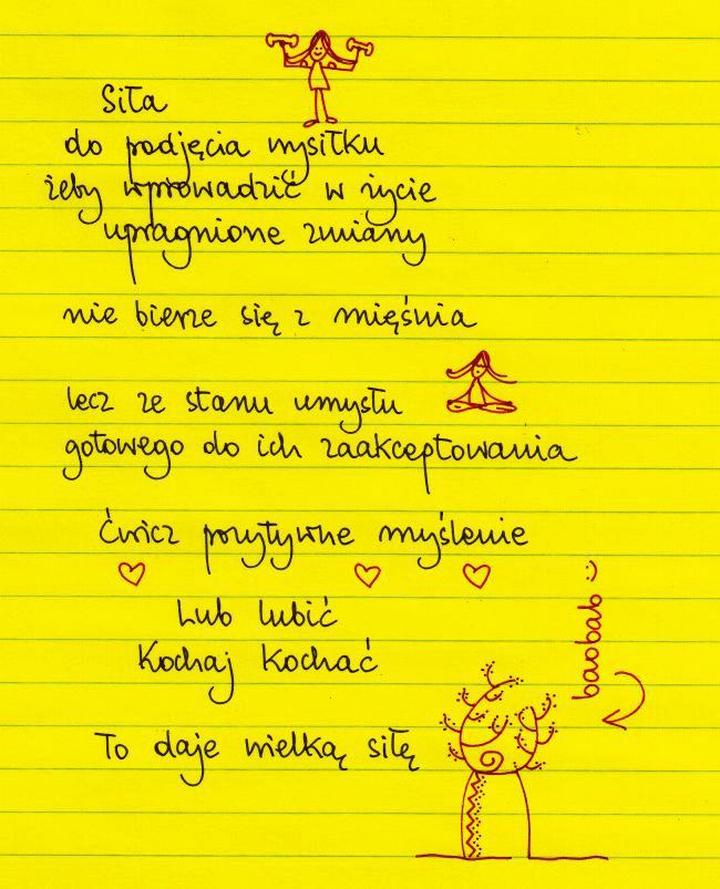 Siła
do podjęcia wysiłku
żeby wprowadzić w życie
upragnione zmiany
nie bierze się z mięśnia
lecz ze stanu umysłu
gotowego do ich zaakceptowania
Ćwicz pozytywne myślenie
Lub lubić
Kochaj kochać
To daje wielką siłę
baobab :)